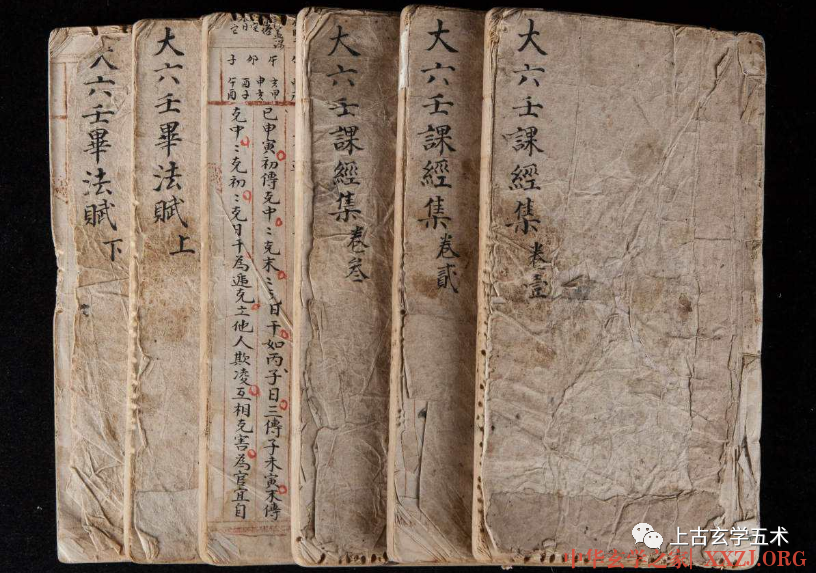 大六壬課經集 卷壹
大六壬課經集 卷貳
大六壬課經集 卷叁
巳申寅初傳克中〻克末〻克日干如丙子日三傳子未寅末傳
克中〻克初〻克日干為遞克主他人欺凌互相克害為官宜自
大六壬畢法賦 上
大六壬畢法賦 下
上古玄学五术
XXZJ.ORG